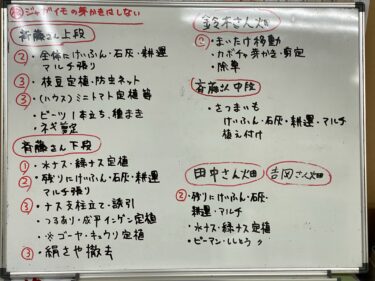 ㊟ジャガイモの芽かきはしない
斉藤さん上段
② ・全体にけいふん・石灰・耕運
マルチ張り
③ ・枝豆定植・防虫ネット
③ ・(ハウス)ミニトマト定植等
・ビーツ1本立ち、種まき
・ネギ剪定
斉藤さん下段
① ・水ナス・緑ナス定植
② ・残りにけいふん・石灰・耕運
マルチ張り
③ ・ナス支柱立て・誘引
・つるあり・成平インゲン定植
・※ゴーヤ・キュウリ定植
③ ・絹さや撤去
鈴木さん畑
・まいたけ移動
・カボチャ芽かき・剪定
・除草
斉藤さん中段
・さつまいも
けいふん・石灰・耕運・マルチ
植え付け
田中さん畑 吉岡さん畑
② ・残りにけいふん・石灰・
耕運・マルチ
・水ナス・緑ナス定植
・ピーマン・ししとう 〃